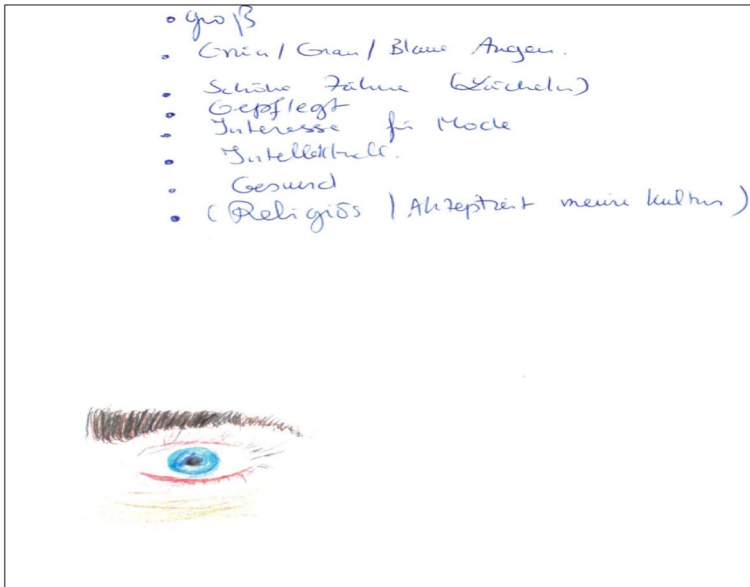 • groß
• Grün / Grau / Blaue Augen.
• Schöne Zähne (Lächeln)
• Gepflegt
• Interesse für Mode
• Intellektuell.
• Gesund
• (Religiös | Akzeptiert meine Kultur)